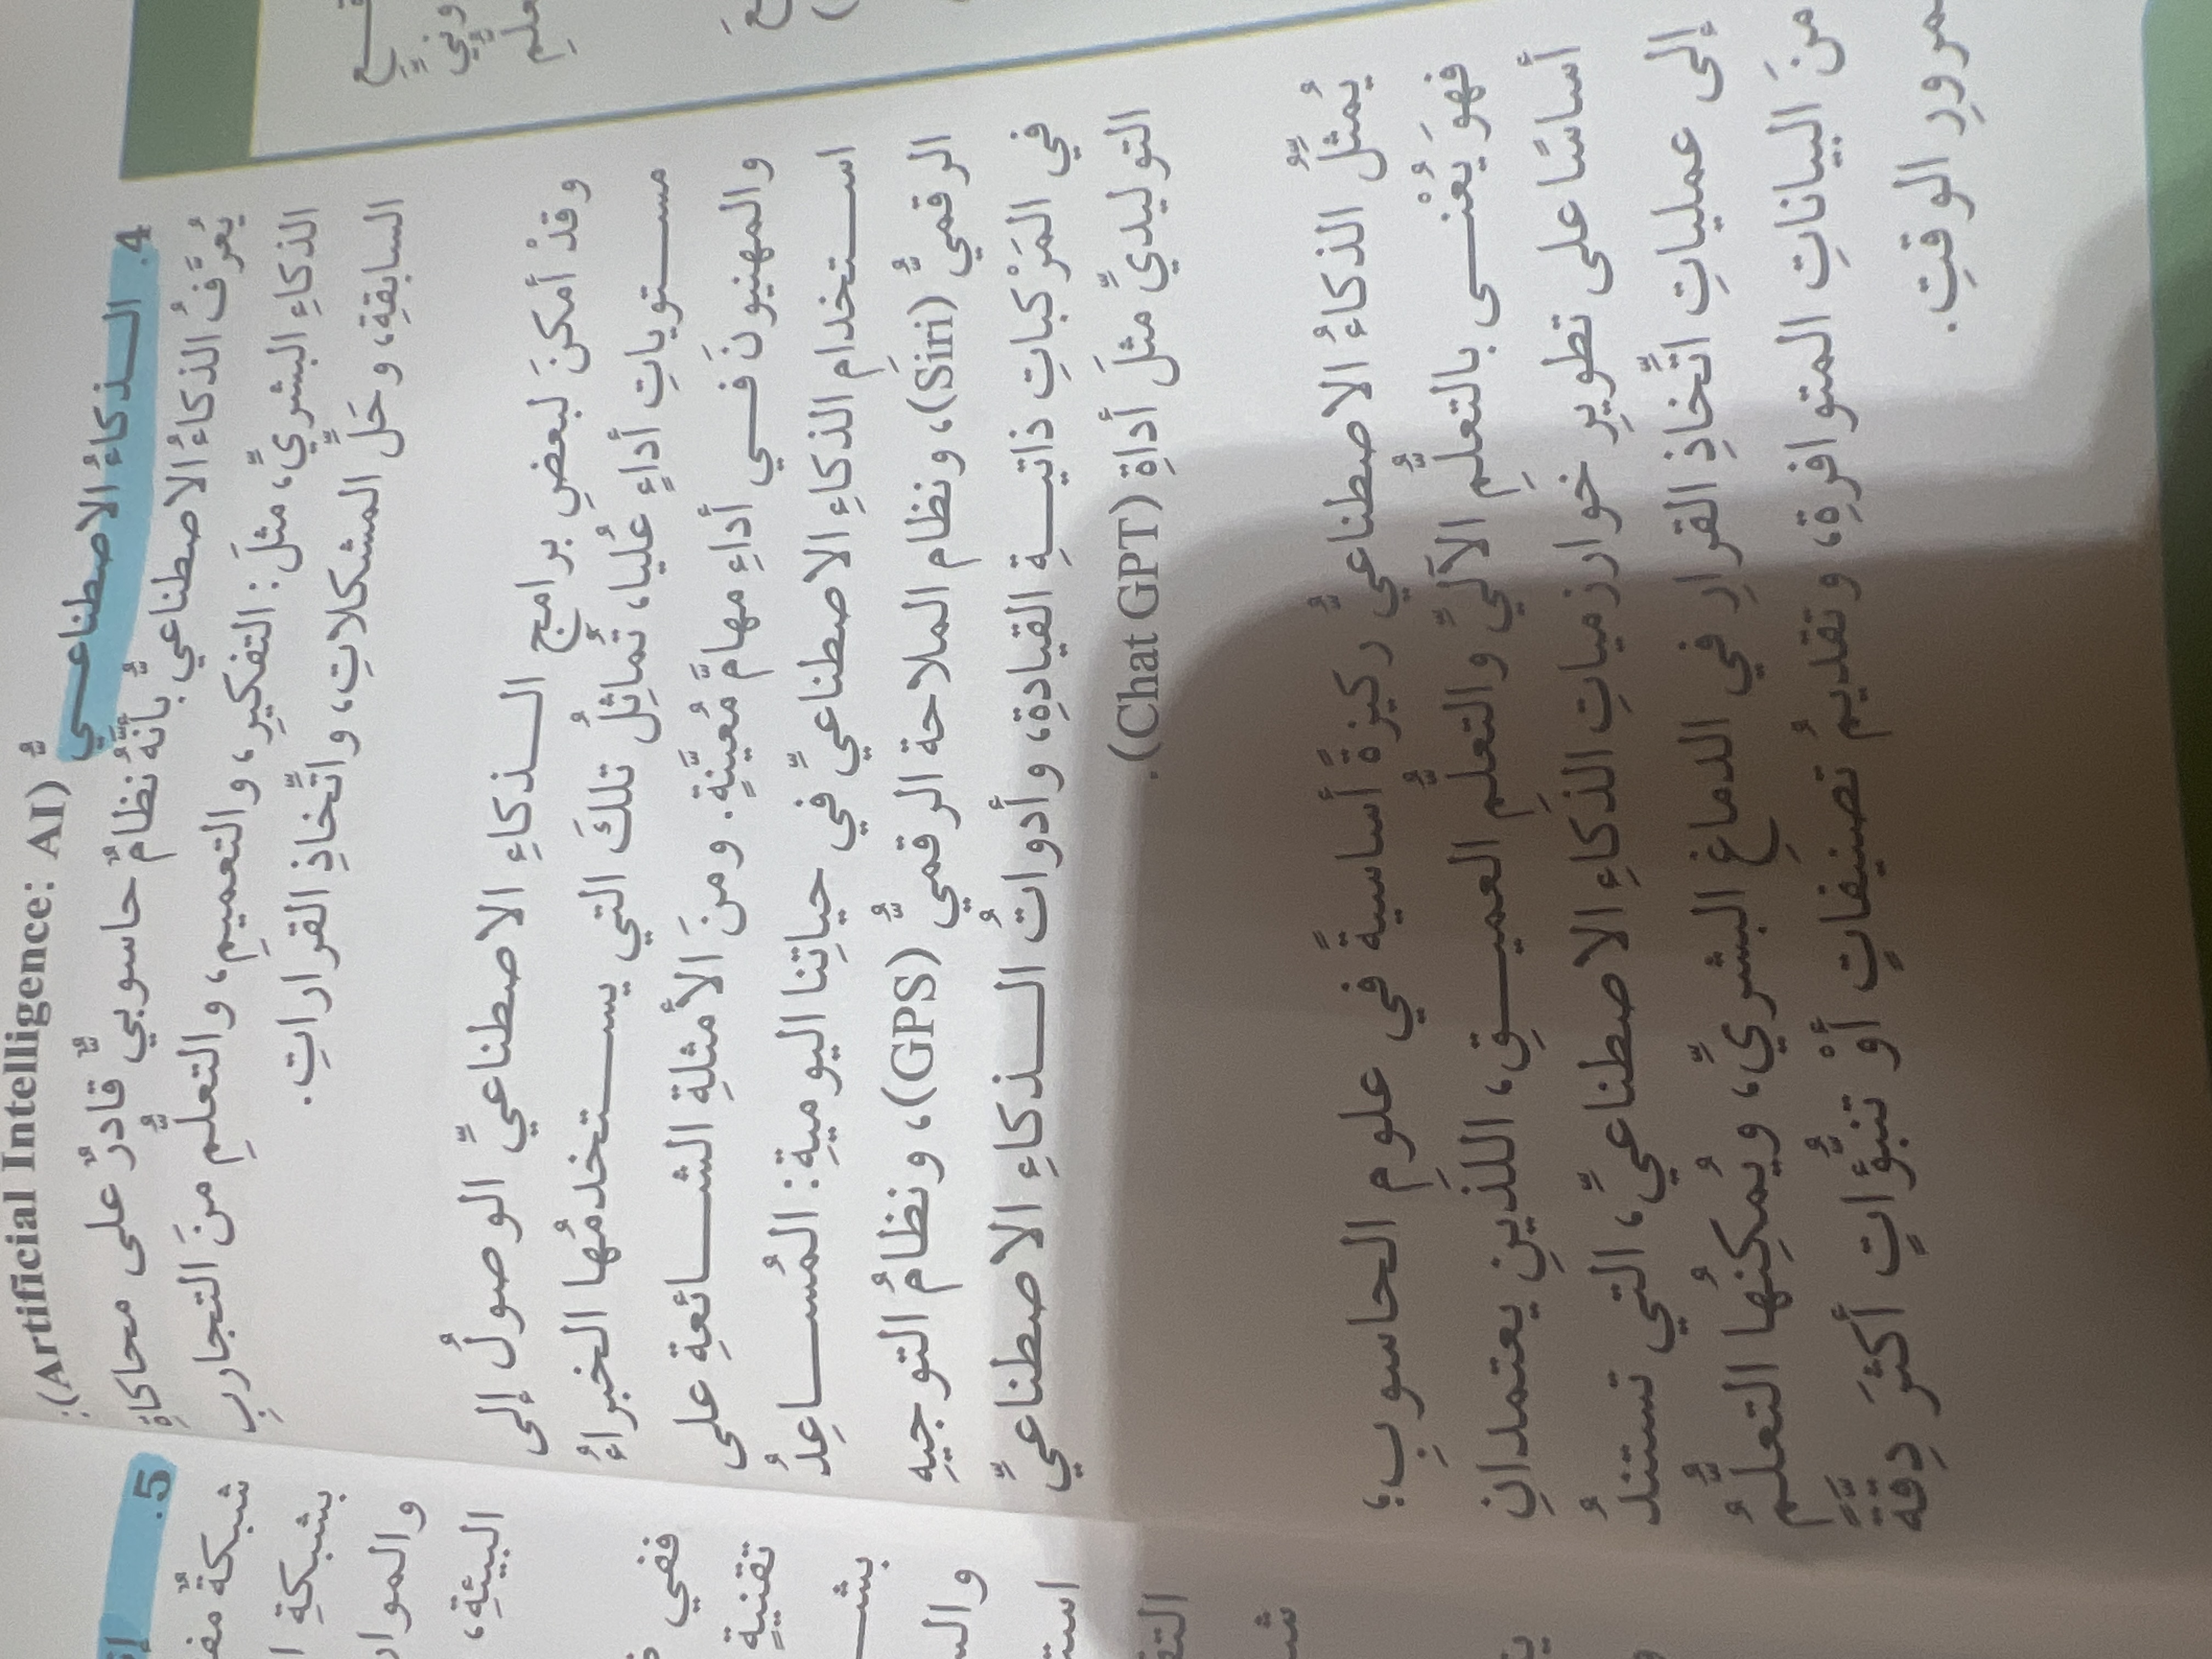 4. الذكاءُ الاصطناعيُّ (Artificial Intelligence: AI):
يُعرَّفُ الذكاءُ الاصطناعيُّ بأنَّهُ نظامٌ حاسوبيٌّ قادرٌ على محاكاةِ
الذكاءِ البشريِّ، مثلَ: التفكيرِ، والتعميمِ، والتعلُّمِ منَ التجاربِ
السابقةِ، وحَلِّ المشكلاتِ، واتِّخاذِ القراراتِ.
وقدْ أمكنَ لبعضِ برامجِ الذكاءِ الاصطناعيِّ الوصولُ إلى
مستوياتِ أداءٍ عُليا، تُماثِلُ تلكَ التي يستخدمُها الخبراءُ
والمهنيونَ في أداءِ مهامَّ مُعيَّنةٍ. ومنَ الأمثلةِ الشائعةِ على
استخدامِ الذكاءِ الاصطناعيِّ في حياتِنا اليوميةِ: المُساعِدُ
الرقميُّ (Siri)، ونظام الملاحة الرقميُّ (GPS)، ونظامُ التوجيهِ
في المَرْكباتِ ذاتيةِ القيادةِ، وأدواتُ الذكاءِ الاصطناعيِّ
التوليديِّ مثلَ أداةِ (Chat GPT).
يُمثِّلُ الذكاءُ الاصطناعيُّ ركيزةً أساسيةً في علومِ الحاسوبِ؛
فهوَ يُعْنى بالتعلُّمِ الآليِّ والتعلُّمِ العميقِ، اللذينِ يعتمدانِ
أساسًا على تطويرِ خوارزمياتِ الذكاءِ الاصطناعيِّ، التي تستندُ
إلى عملياتِ اتِّخاذِ القرارِ في الدماغِ البشريِّ، ويُمكِنُها التعلُّمُ
منَ البياناتِ المتوافرةِ، وتقديمُ تصنيفاتٍ أوْ تنبُّؤاتٍ أكثرَ دِقَّةً
بمرورِ الوقتِ.
5.
شبكةٌ
بشبكةِ
البيئةِ،
ففي
تقنيةِ